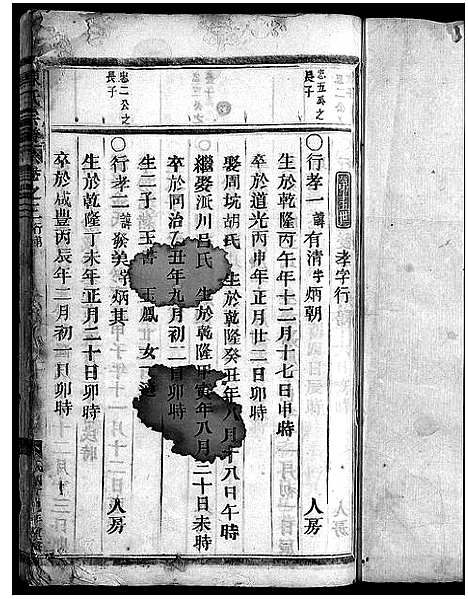 孝字行
忠五公之
長子
○行孝一諱有清字炳朝
人房
生於乾隆丙午年十二月十七日申時
卒於道光丙申年正月廿二日卯時
娶周坑胡氏 生於乾隆癸丑年八月十八日午時
繼娶派川呂氏 生於乾隆甲寅年八月二十日未時
卒於同治乙丑年九月初二日卯時
生二子 玉書 玉鳳 女一適
忠二公之
長子
○行孝二諱發美字炳其
人房
生於乾隆丁未年正月二十日卯時
卒於咸豐丙辰年三月初一日卯時